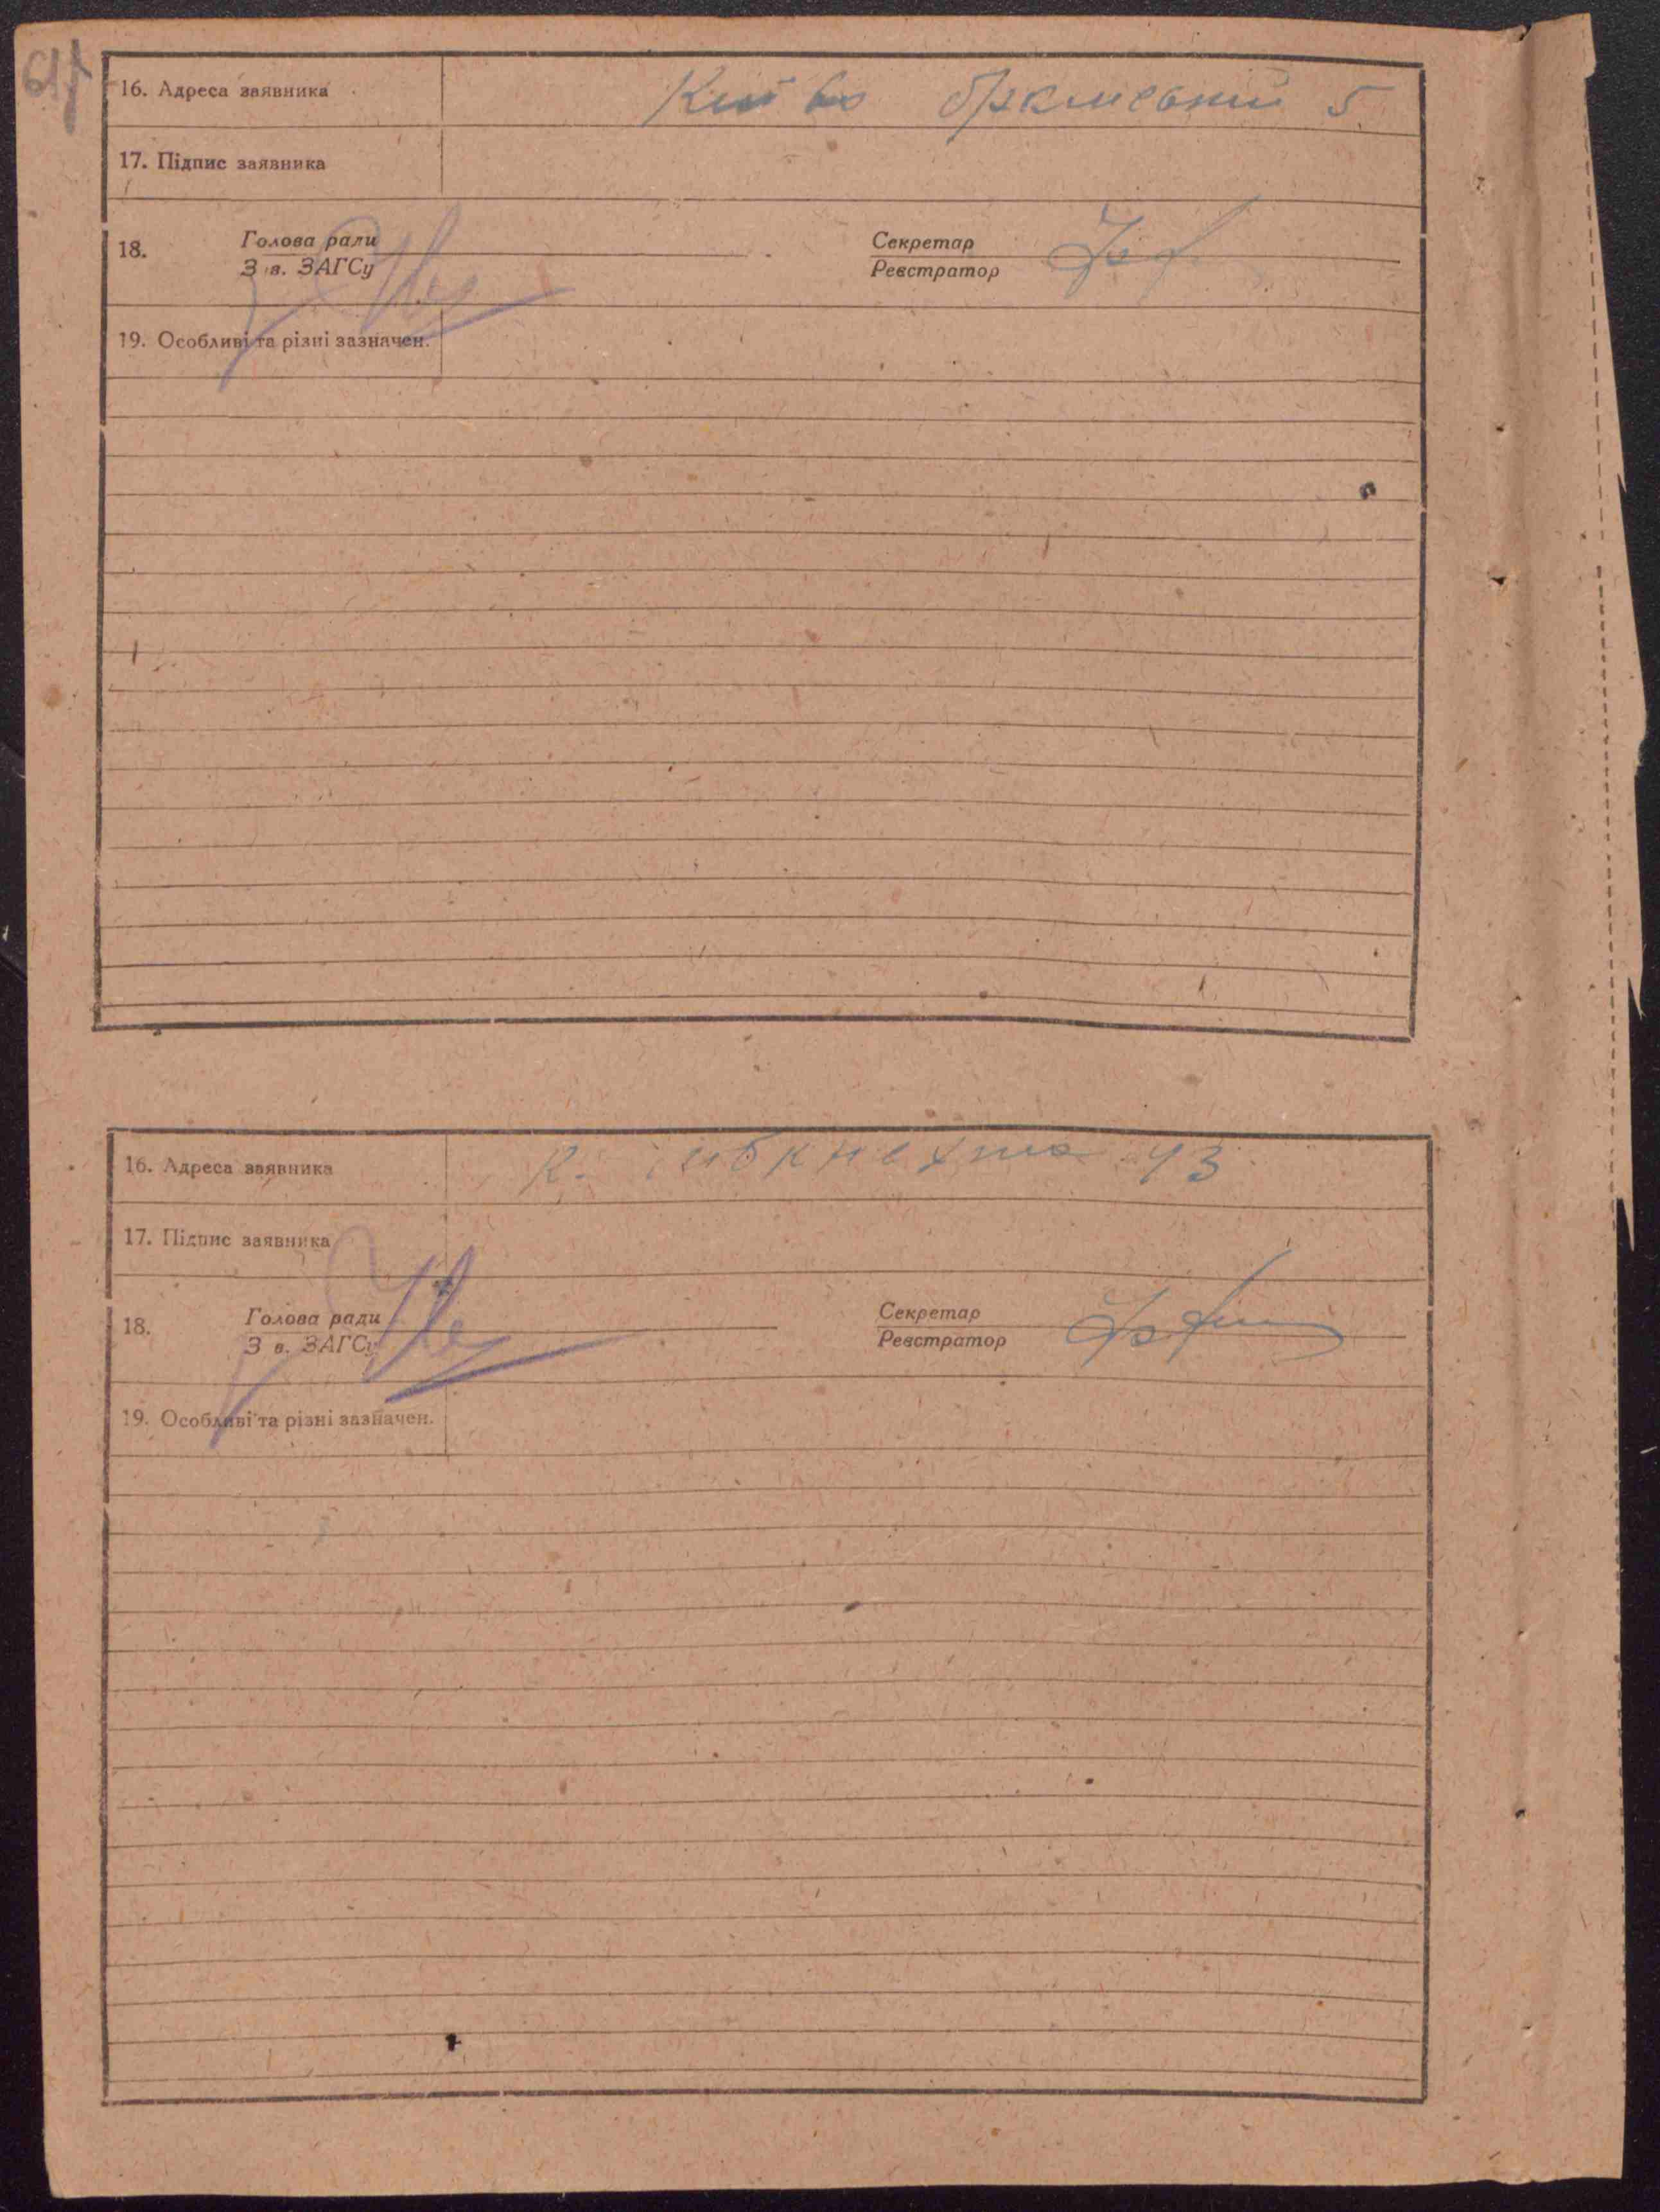 16. Адреса заявника
17. Підпис заявника
18. Голова ради Секретар
З в. ЗАГСу Реєстратор
19. Особливі та різні зазначен.
16. Адреса заявника К. Лібкнехта 43
17. Підпис заявника
18. Голова ради Секретар
З в. ЗАГСу Реєстратор
19. Особливі та різні зазначен.